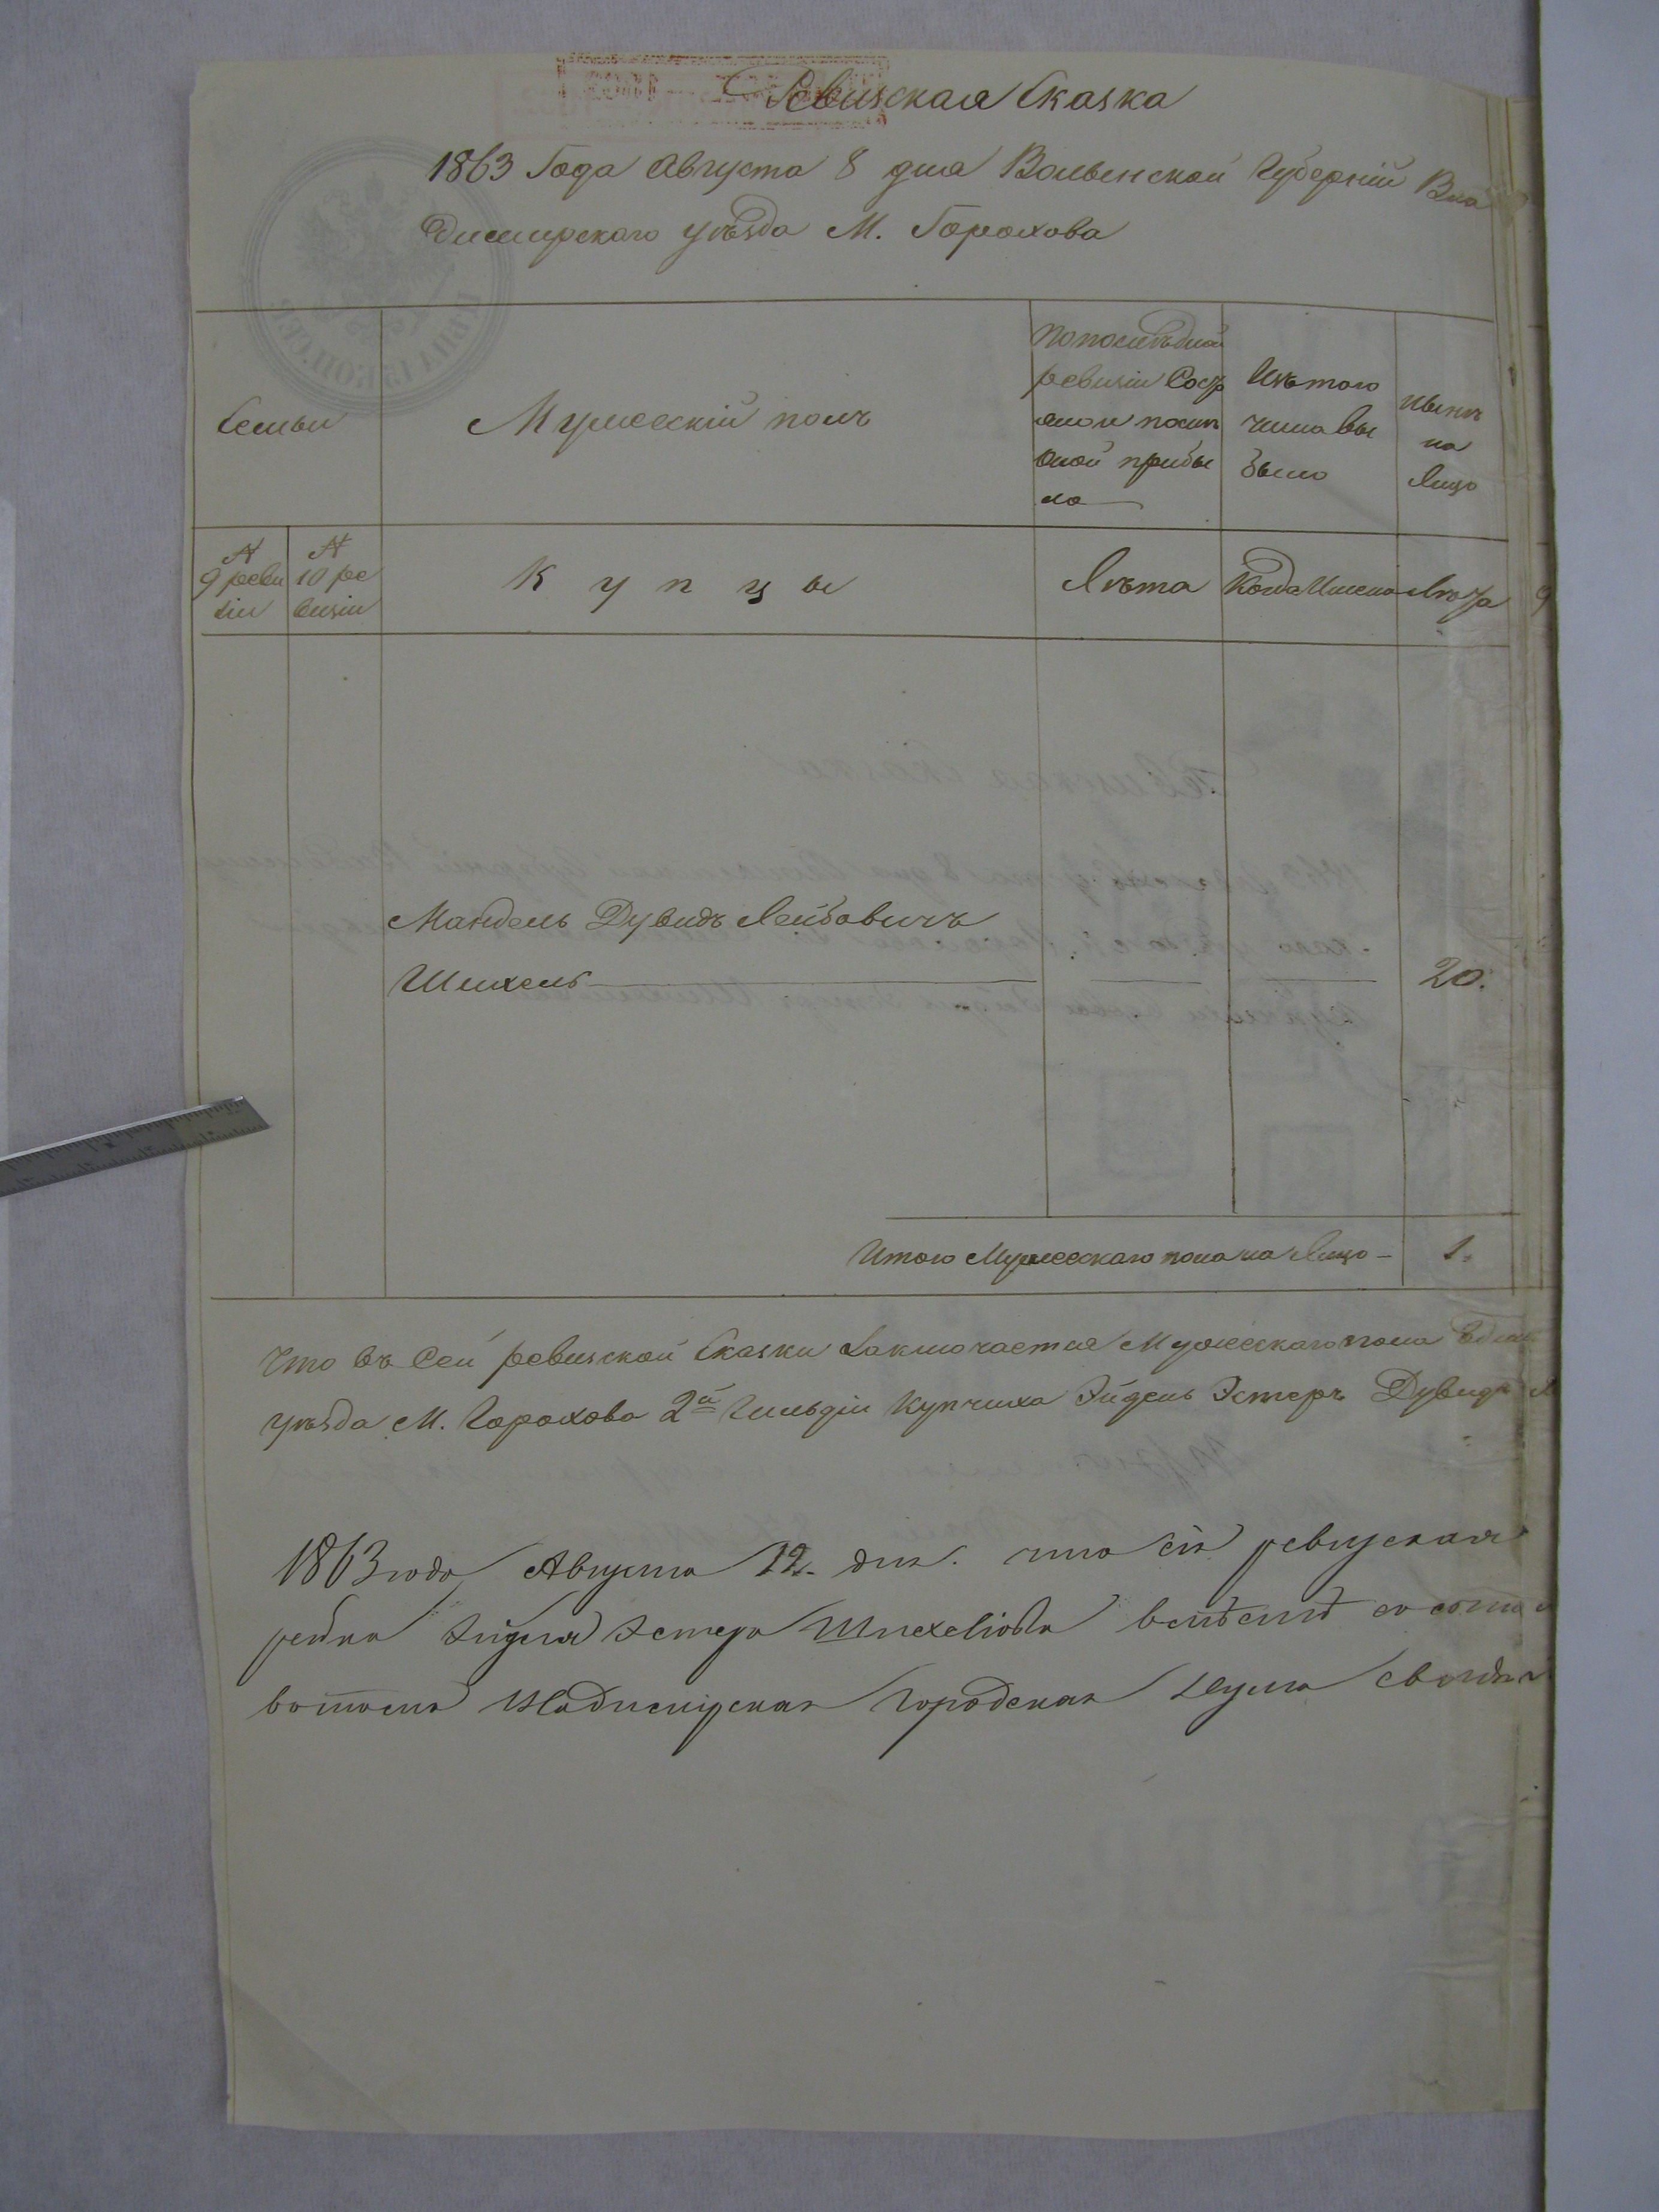 Ревизская Сказка
1863 Года Августа 8 дня Волынской Губерніи Вла
димирскаго уѣзда М. Горохова
Семьи
Мужескій полъ
По послѣдней
ревизіи Сост
ояло и послѣ
оной прибы
ло
Изъ того
числа вы
было
нынѣ
на
Лицо
№
9 реви
зіи
№
10 ре
визіи
Купцы
Лѣта
Когда Именно
Лѣта
Мандель Дувидъ Лейбовичъ
Шпхель
20.
Итого Мужескаго пола на Лицо –
1.
Что въ Сей ревизской Сказки Заключается Мужескаго пола
уѣзда М. Горохова 2й Гильдіи Купчиха Эйдель Эстеръ Дувидъ
1863 года Августа 12. дня. что сія ревизская
Эйдля Эстера вмѣстѣ со
Владимірская Городская Дума